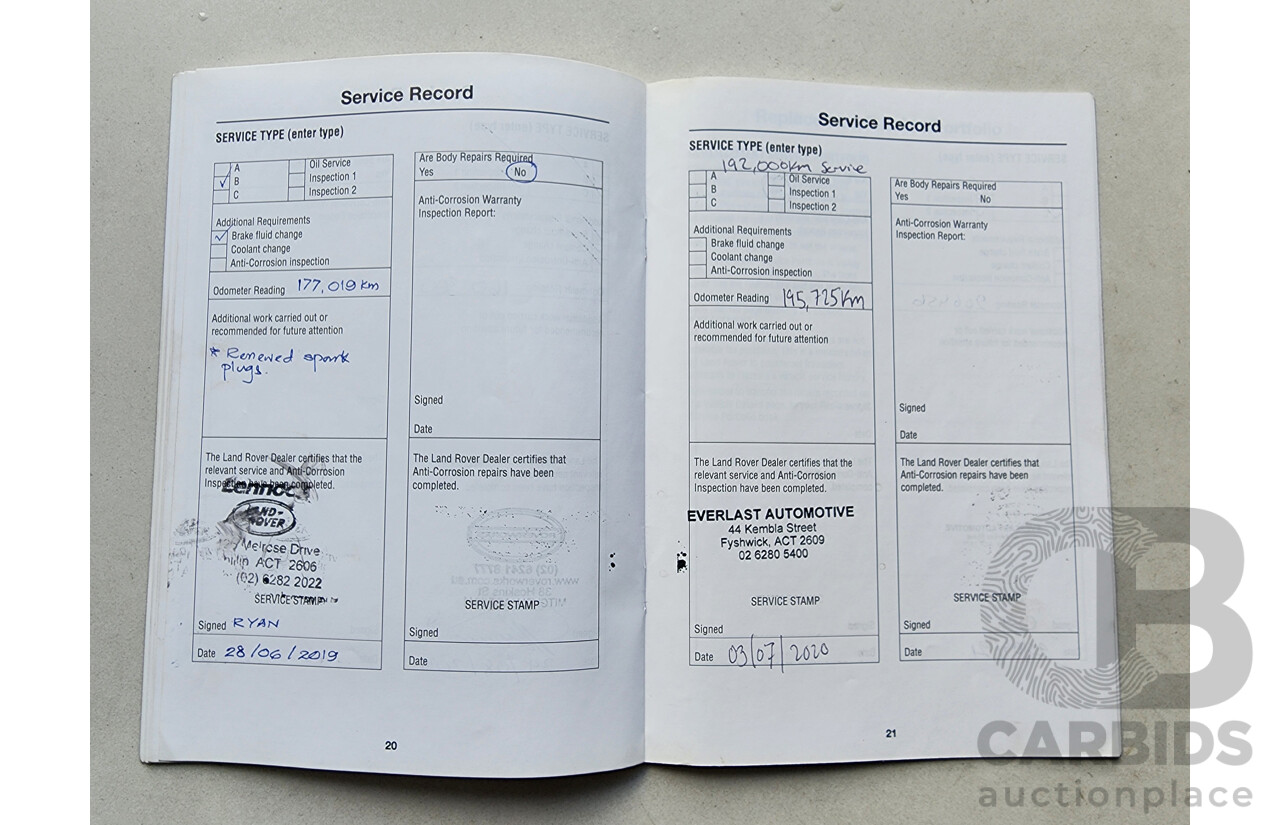 Service Record
SERVICE TYPE (enter type)
A
✓ B
C
Oil Service
Inspection 1
Inspection 2
Additional Requirements
✓ Brake fluid change
Coolant change
Anti-Corrosion inspection
Odometer Reading 177,019 km
Additional work carried out or
recommended for future attention
* Renewed spark
plugs.
The Land Rover Dealer certifies that the
relevant service and Anti-Corrosion
Inspection have been completed.
Lennock
LAND-
ROVER
Melrose Drive
ACT 2606
(02) 6282 2022
SERVICE STAMP
Signed RYAN
Date 28/06/2019
Are Body Repairs Required
Yes No
Anti-Corrosion Warranty
Inspection Report:
Signed
Date
The Land Rover Dealer certifies that
Anti-Corrosion repairs have been
completed.
SERVICE STAMP
Signed
Date
20
Service Record
SERVICE TYPE (enter type)
192,000km Service
A
B
C
Oil Service
Inspection 1
Inspection 2
Additional Requirements
Brake fluid change
Coolant change
Anti-Corrosion inspection
Odometer Reading 195,725km
Additional work carried out or
recommended for future attention
The Land Rover Dealer certifies that the
relevant service and Anti-Corrosion
Inspection have been completed.
EVERLAST AUTOMOTIVE
44 Kembla Street
Fyshwick, ACT 2609
02 6280 5400
SERVICE STAMP
Signed
Date 03/07/2020
Are Body Repairs Required
Yes No
Anti-Corrosion Warranty
Inspection Report:
Signed
Date
The Land Rover Dealer certifies that
Anti-Corrosion repairs have been
completed.
SERVICE STAMP
Signed
Date
21
CB
CARBIDS
auctionplace